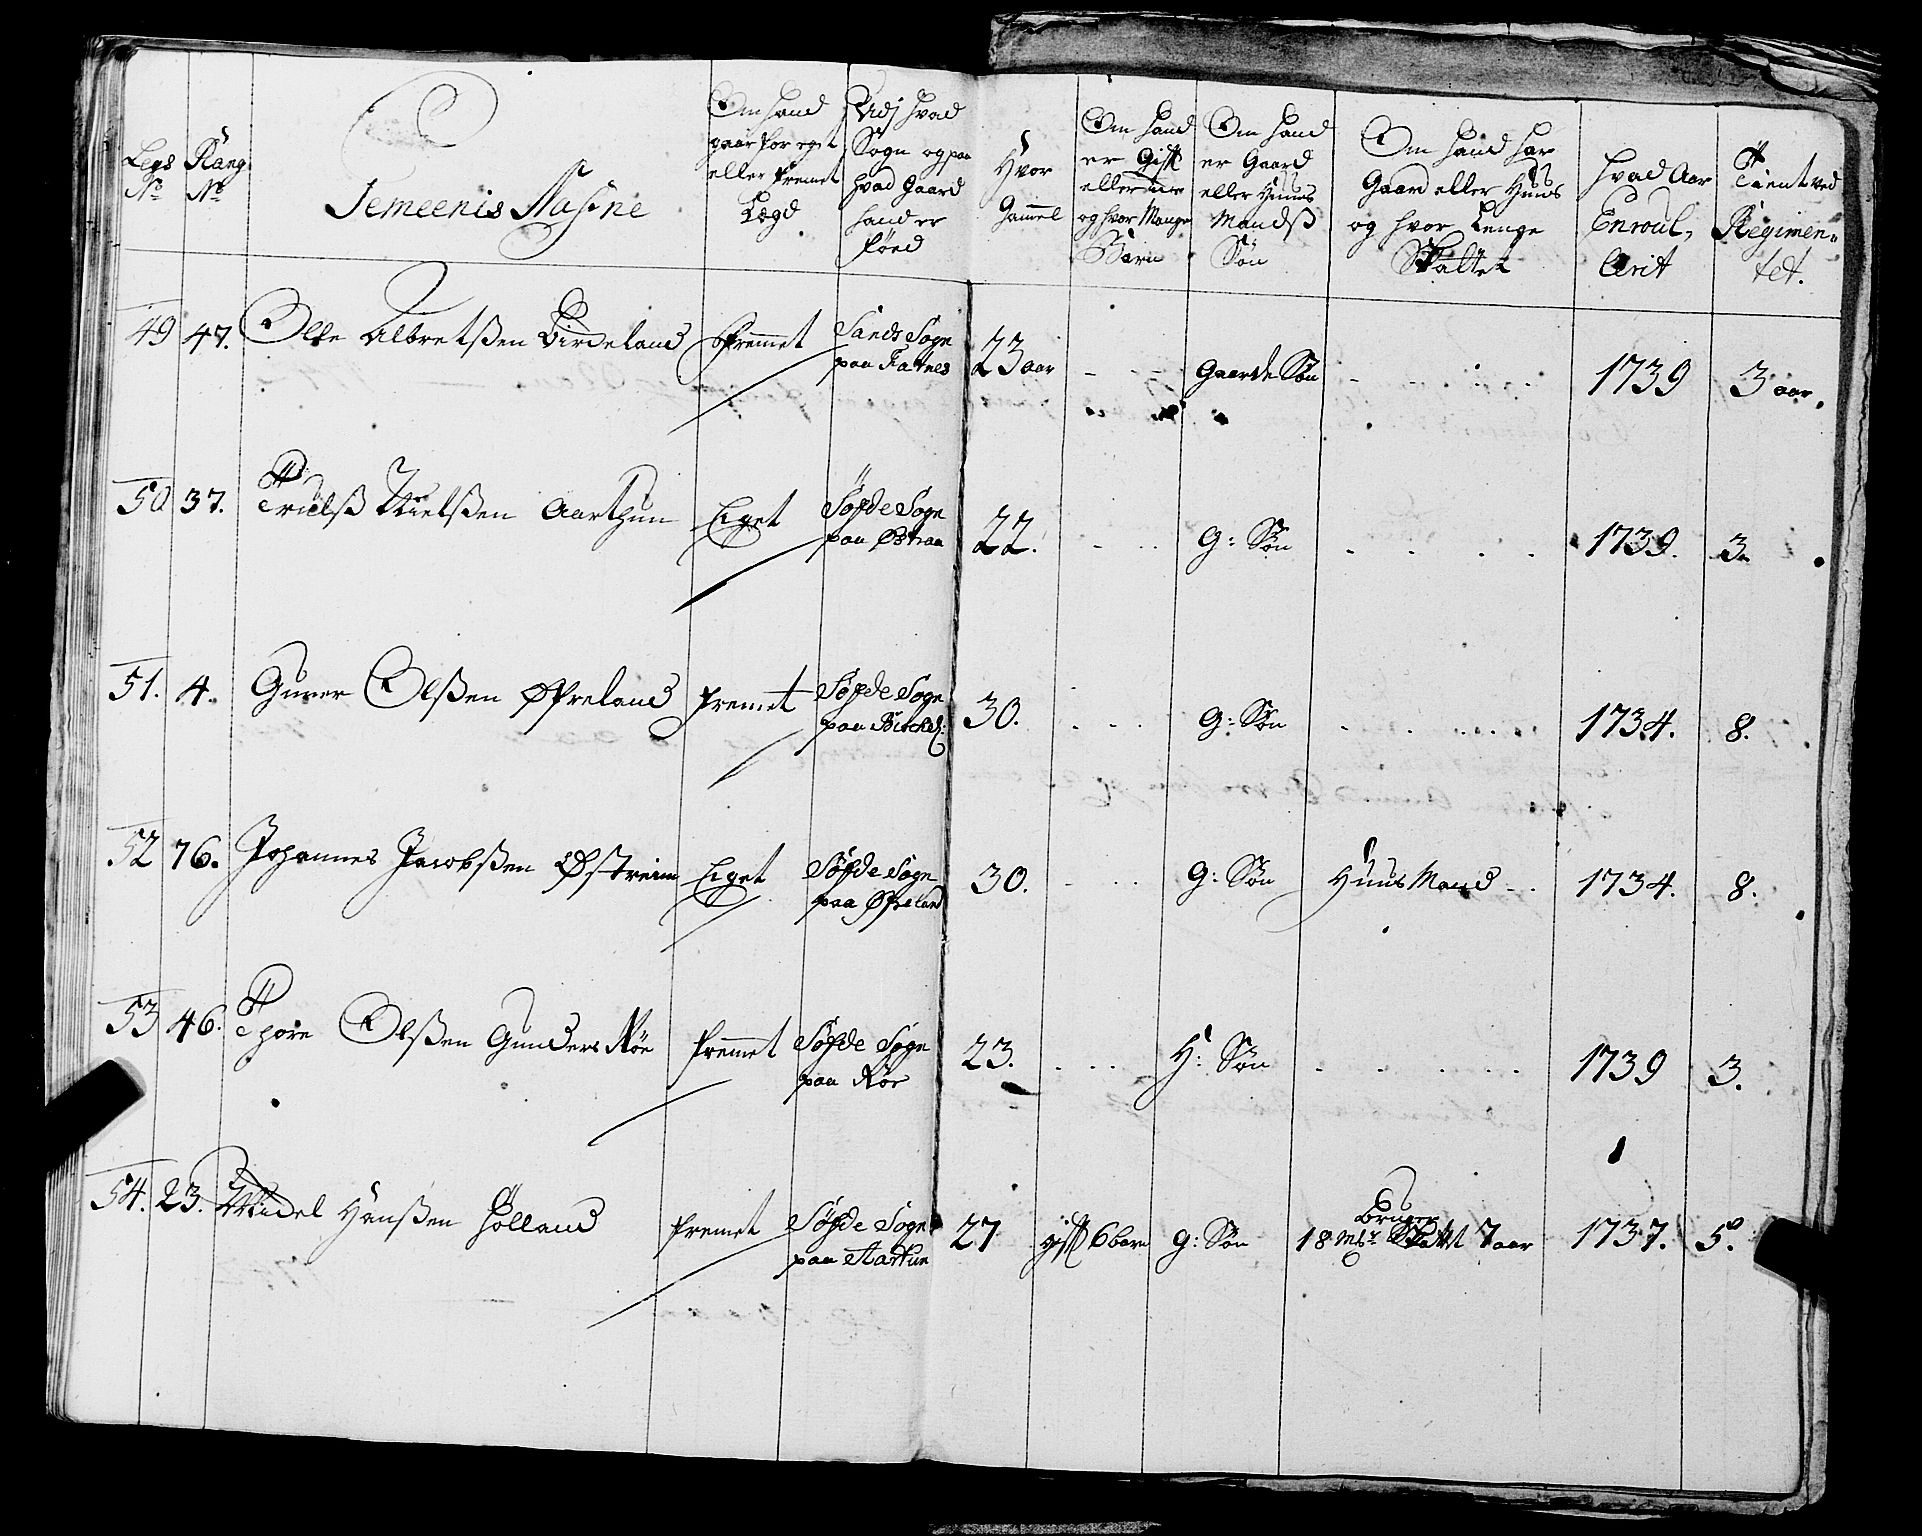 Legs No
Rang No
Jemeenis Nafne
Om hand gaar for eget eller fremet Legd
Udj hvad Sogn og paa hvad Gaard hand er föed
Hvor Gammel
Om hand er Gift eller ei og hvor Mange Börn
Om hand er Gaard eller Huus Mandsß Søn
Om hand har Gaard eller Huus og hvor Lenge Skattet
hvad Aar Enroul, erit
Tient ved Regimen= tet.
49 47. Olle Albretsßen Birdeland fremmet Sands Sogn paa Fatnes 23 aar - - Gaarde Søn - - - - 1739 3 aar.
50 37. Trulsß Nielsßen Aarthun Eget Söfde Sogn paa Østraa 22. - - G: Søn - - - - 1739. 3.
51. 4. Guner Olsßen Øfreland fremet Söfde Sogn paa 30. - - - G: Søn - - - - 1734. 8.
52 76. Johannes Jacobsßen Østreim Eget Söfde Sogn paa Øfreland 30. - - - G: Søn Huus Mand - - 1734. 8.
53 46. Thore Olsßen Gunders Röe fremmet Söfde Sogn paa Röe 23. - - - H: Søn - - - - 1739 3.
54. 23. Midel Hansßen Holland fremet Söfde Sogn paa Aartun 27 gift 6 barn G: Søn Bruger 18 Mrk Skattet 7 aar 1737. 5.